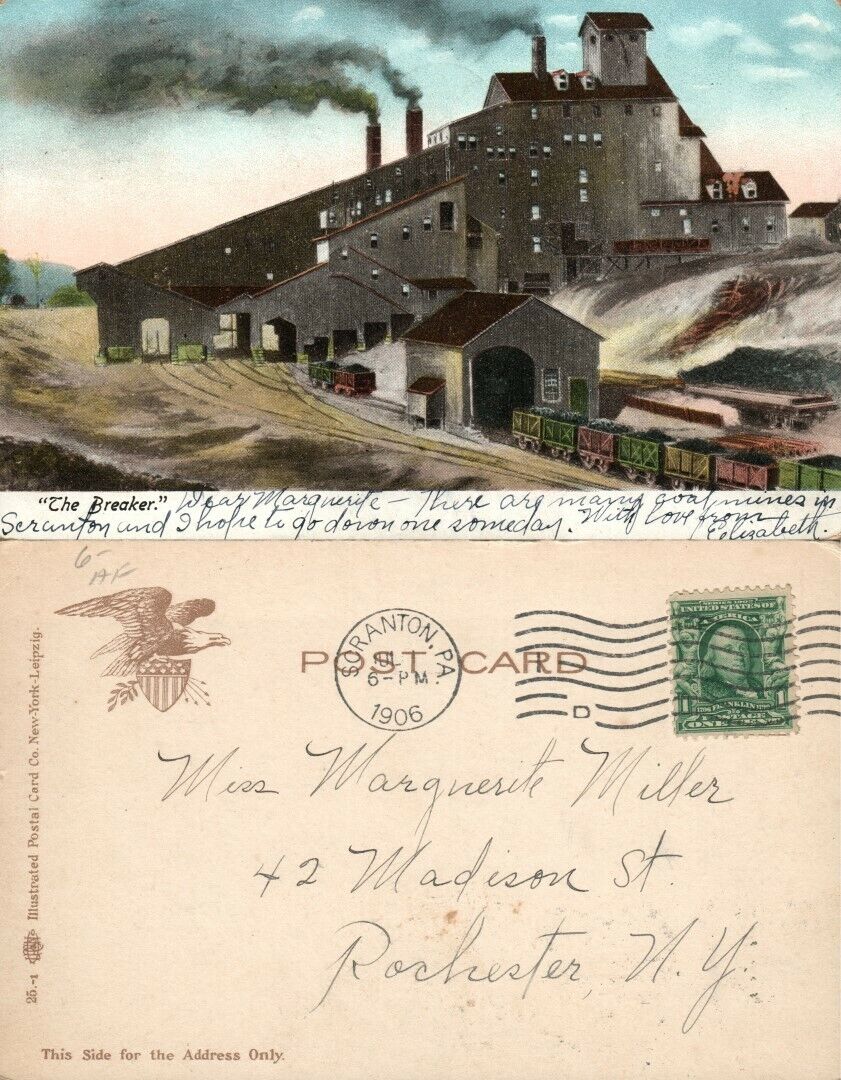 "The Breaker." Dear Marguerite - There are many coal mines in
Scranton and I hope to go down one someday. With love from
Elizabeth.
6-
AF
SCRANTON, PA.
6-PM
1906
D
POST CARD
SERIES 1902
UNITED STATES OF
AMERICA
1706 FRANKLIN 1790
POSTAGE
1 ONE CENT 1
Miss Marguerite Miller
42 Madison St.
Rochester, N.Y.
25.-1 Illustrated Postal Card Co. New-York-Leipzig.
This Side for the Address Only.